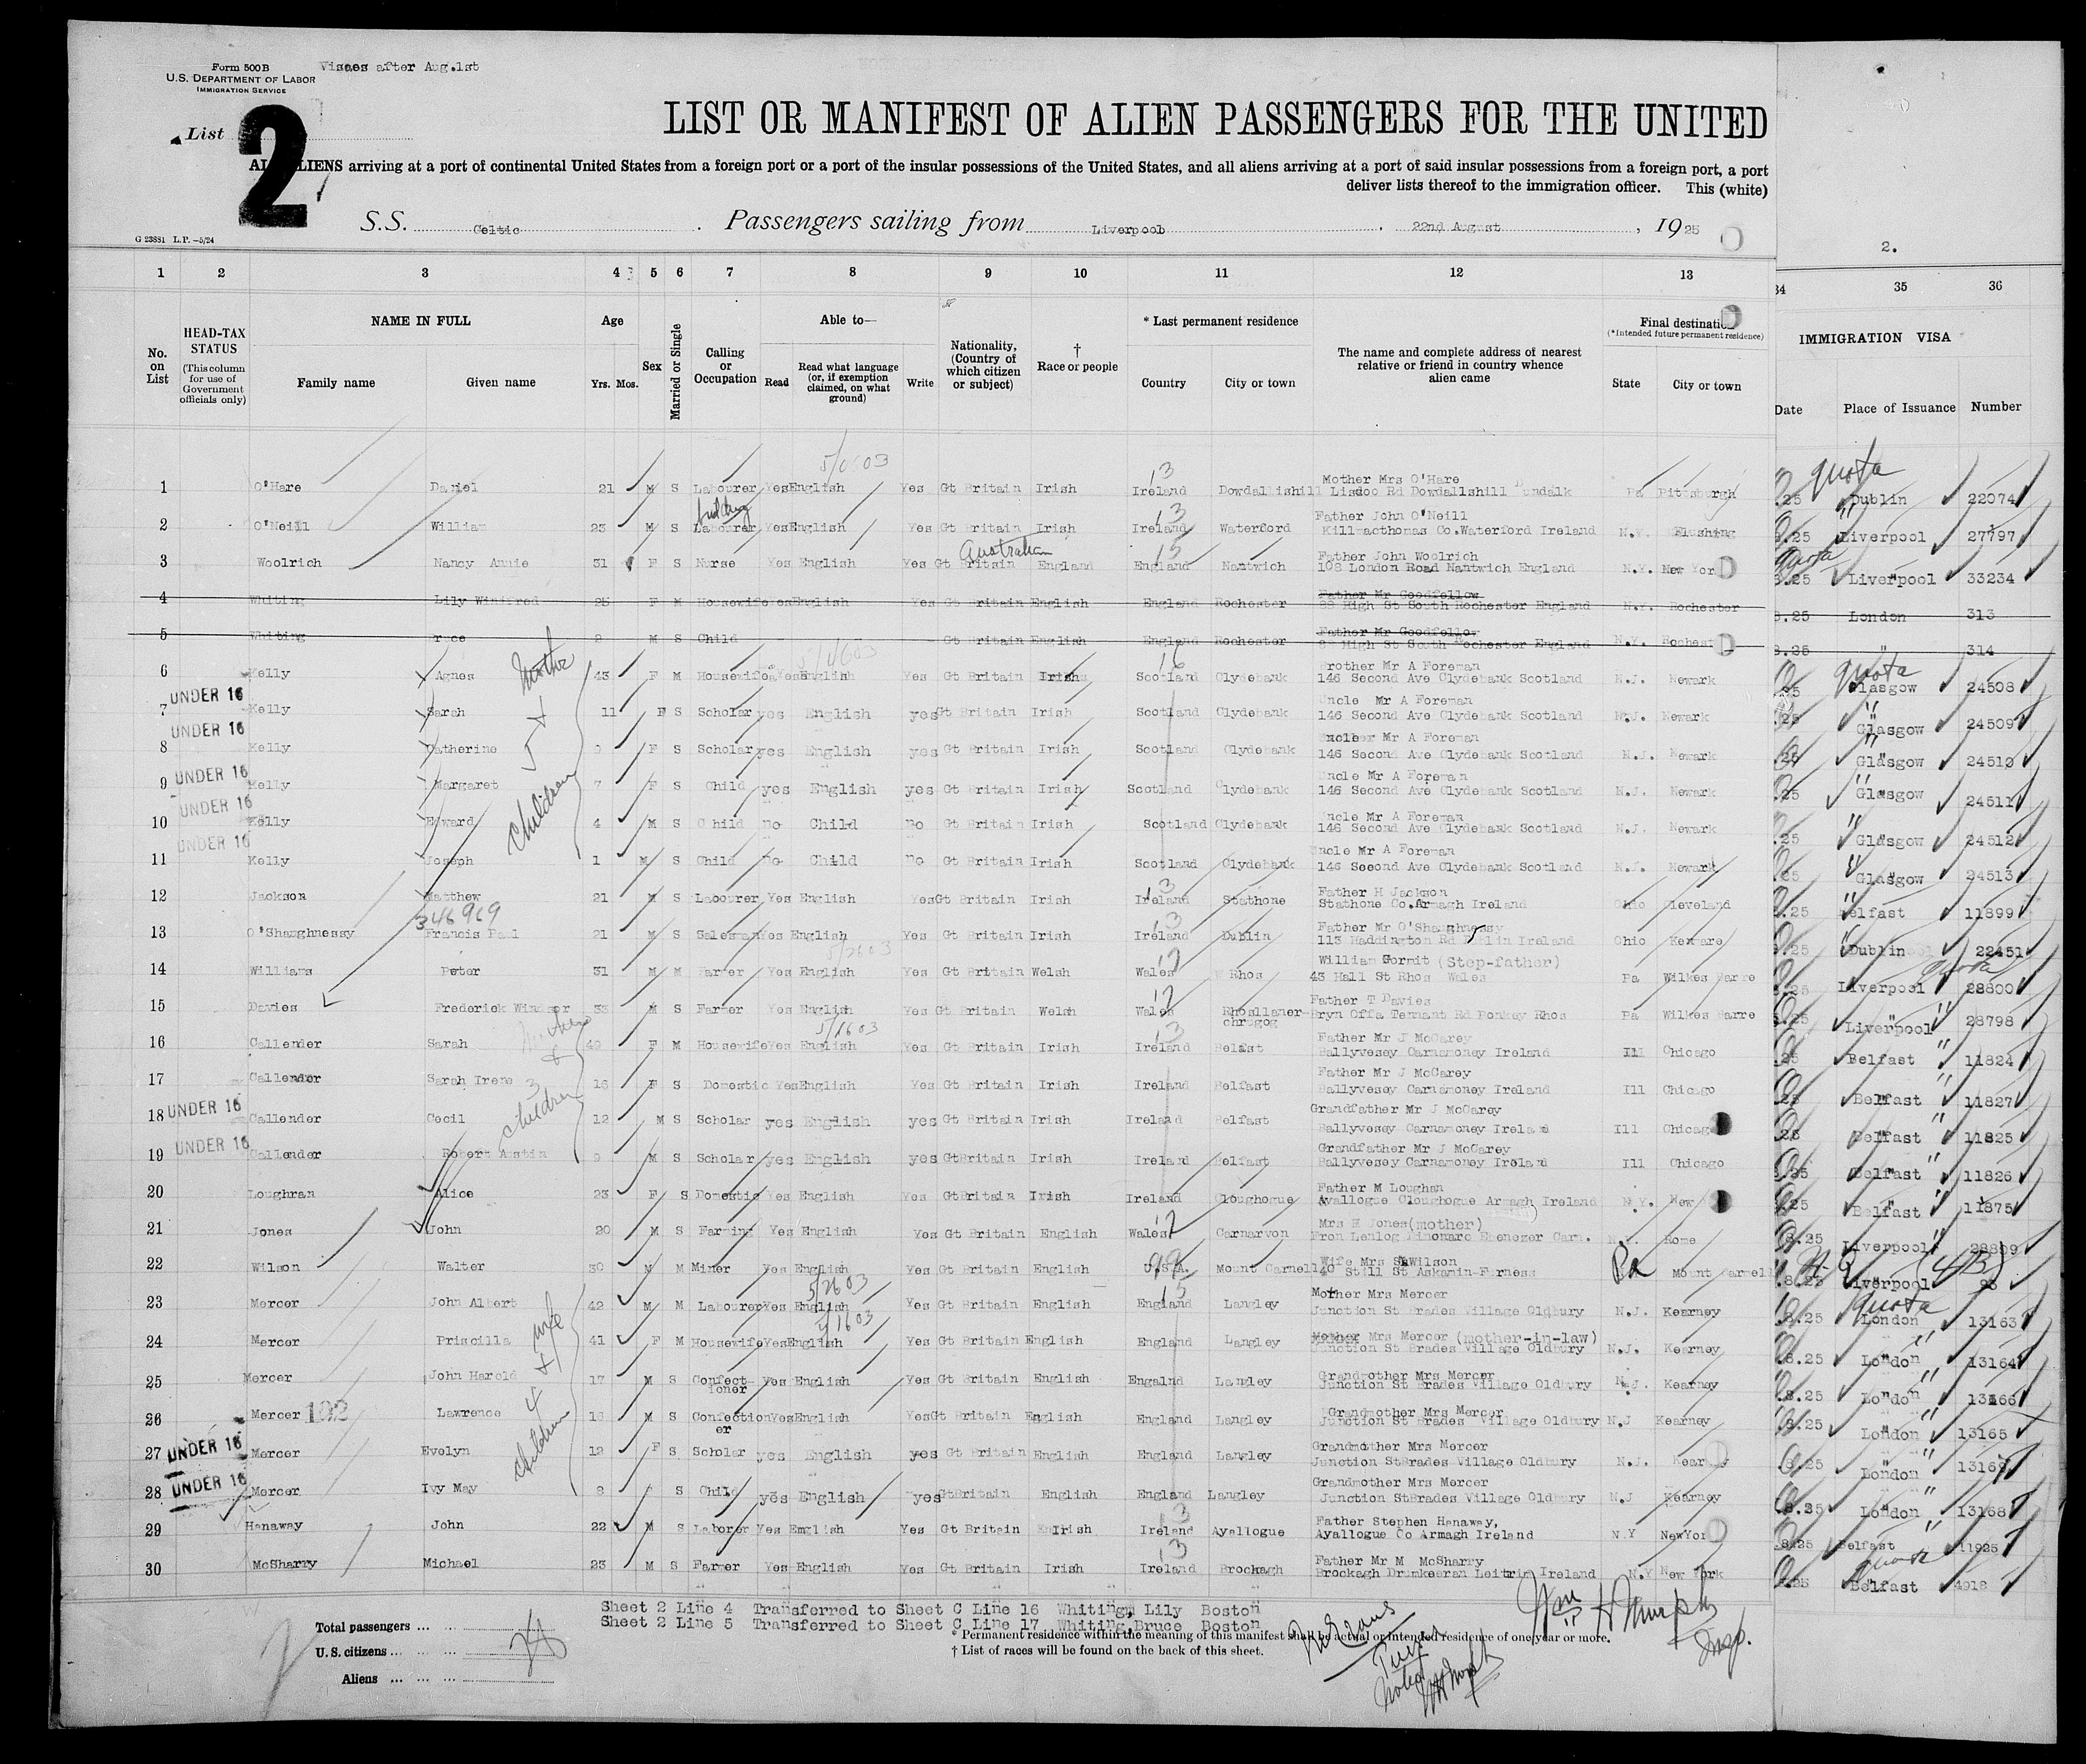 Form 500 B Visaes after Aug.1st
U.S. DEPARTMENT OF LABOR
IMMIGRATION SERVICE
List 2
LIST OR MANIFEST OF ALIEN PASSENGERS FOR THE UNITED
ALL ALIENS arriving at a port of continental United States from a foreign port or a port of the insular possessions of the United States, and all aliens arriving at a port of said insular possessions from a foreign port, a port
deliver lists thereof to the immigration officer. This (white)
S.S. Celtic . Passengers sailing from Liverpool . 22nd August , 1925
G 23881 L.P.—5/24
2.
1 2 3 4 5 6 7 8 9 10 11 12 13 34 35 36
No. on List
HEAD-TAX STATUS (This column for use of Government officials only)
NAME IN FULL
Family name Given name
Age
Yrs. Mos.
Sex
Married or Single
Calling or Occupation
Able to—
Read Read what language (or, if exemption claimed, on what ground) Write
Nationality, (Country of which citizen or subject)
† Race or people
* Last permanent residence
Country City or town
The name and complete address of nearest relative or friend in country whence alien came
Final destination
(*Intended future permanent residence)
State City or town
IMMIGRATION VISA
Date Place of Issuance Number
5/0603
1 O'Hare Daniel 21 M S Labourer Yes English Yes Gt Britain Irish Ireland Dowdallishill Mother Mrs O'Hare Lisdoo Rd Dowdallshill Dundalk Pa Pittsburgh .25 quota Dublin 22074
2 O'Neill William 23 M S Labourer Yes English Yes Gt Britain Irish Ireland Waterford Father John O'Neill Killmacthomas Co.Waterford Ireland N.Y. Flushing 8.25 " Liverpool 27797
3 Woolrich Nancy Annie 31 F S Nurse Yes English Yes Gt Britain Australian England England Nantwich Father John Woolrich 108 London Road Nantwich England N.Y. New Yor 8.25 quota Liverpool 33234
4 Whiting Lily Winifred 25 F M Housewife Yes English Yes Gt Britain English England Rochester Father Mr Goodfellow 28 High St South Rochester England N.Y. Rochester 8.25 London 313
5 Whiting ruce 2 M S Child Gt Britain English England Rochester Father Mr Goodfellow High St South Rochester England N.Y. Rochest 8.25 " 314
5/4603
6 Kelly Agnes Mother 43 F M Housewife Yes English Yes Gt Britain Irish Scotland Clydebank Brother Mr A Foreman 146 Second Ave Clydebank Scotland N.J. Newark .25 quota Glasgow 24508
UNDER 16
7 Kelly Sarah + 11 F S Scholar yes English yes Gt Britain Irish Scotland Clydebank Uncle Mr A Foreman 146 Second Ave Clydebank Scotland N.J. Newark .25 " Glasgow 24509
UNDER 16
8 Kelly Catherine 5 9 F S Scholar yes English yes Gt Britain Irish Scotland Clydebank Uncle Mr A Foreman 146 Second Ave Clydebank Scotland N.J. Newark .25 " Glasgow 24510
UNDER 16
9 Kelly Margaret children 7 F S Child yes English yes Gt Britain Irish Scotland Clydebank Uncle Mr A Foreman 146 Second Ave Clydebank Scotland N.J. Newark .25 " Glasgow 24511
UNDER 16
10 Kelly Edward 4 M S Child no Child no Gt Britain Irish Scotland Clydebank Uncle Mr A Foreman 146 Second Ave Clydebank Scotland N.J. Newark .25 " Glasgow 24512
UNDER 16
11 Kelly Joseph 1 M S Child no Child no Gt Britain Irish Scotland Clydebank Uncle Mr A Foreman 146 Second Ave Clydebank Scotland N.J. Newark .25 " Glasgow 24513
12 Jackson Matthew 21 M S Labourer Yes English Yes Gt Britain Irish Ireland Stathone Father H Jackson Stathone Co.Armagh Ireland Ohio Cleveland .25 " Belfast 11899
346969
13 O'Shaughnessy Francis Paul 21 M S Salesman Yes English Yes Gt Britain Irish Ireland Dublin Father Mr O'Shaughnessy 113 Haddington Rd Dublin Ireland Ohio Kenware .25 " Dublin 22451
5/2603
14 Williams Peter 31 M M Farmer Yes English Yes Gt Britain Welsh Wales Rhos William Gormit (Step-father) 43 Hall St Rhos Wales Pa Wilkes Barre .25 quota Liverpool 28800
15 Davies Frederick Windsor 33 M S Farmer Yes English Yes Gt Britain Welsh Wales Rhosllaner-chrugog Father T Davies Bryn Offa Tennant Rd Ponkey Rhos Pa Wilkes Barre .25 " Liverpool 28798
5/1603
16 Callender Sarah Mother 42 F M Housewife Yes English Yes Gt Britain Irish Ireland Belfast Father Mr J McCarey Ballyvesey Carnamoney Ireland Ill Chicago .25 " Belfast 11824
17 Callender Sarah Irene & 16 F S Domestic Yes English Yes Gt Britain Irish Ireland Belfast Father Mr J McCarey Ballyvesey Carnamoney Ireland Ill Chicago .25 " Belfast 11827
UNDER 16
18 Callender Cecil 3 children 12 M S Scholar yes English yes Gt Britain Irish Ireland Belfast Grandfather Mr J McCarey Ballyvesey Carnamoney Ireland Ill Chicag .25 " Belfast 11825
UNDER 16
19 Callender Robert Austin 9 M S Scholar yes English yes GtBritain Irish Ireland Belfast Grandfather Mr J McCarey Ballyvesey Carnamoney Ireland Ill Chicago .25 " Belfast 11826
20 Loughran Alice 23 F S Domestic Yes English Yes GtBritain Irish Ireland Cloughogue Father M Loughan Ayallogue Cloughogue Armagh Ireland N.Y. New .25 " Belfast 11875
21 Jones John 20 M S Farming Yes English Yes Gt Britain English Wales Carnarvon Mrs H Jones(mother) Fron Lenlog Ebenezer Carn. Rome 8.25 " Liverpool 28809
22 Wilson Walter 30 M M Miner Yes English Yes Gt Britain English U.S.A. Mount Carmell Wife Mrs S Wilson 40 Still St Askamin-Furness Pa Mount Carmell .8.25 Liverpool (4B) 98
5/2603
23 Mercer John Albert 42 M M Labourer Yes English Yes Gt Britain English England Langley Mother Mrs Mercer Junction St Brades Village Oldbury N.J. Kearney 8.25 quota London 13163
4/1603
24 Mercer Priscilla wife 41 F M Housewife Yes English Yes Gt Britain English England Langley Mother Mrs Mercer (mother-in-law) Junction St Brades Village Oldbury N.J. Kearney .8.25 " London 13164
25 Mercer John Harold + 17 M S Confect-ioner Yes English Yes Gt Britain English Engalnd Langley Grandmother Mrs Mercer Junction St Brades Village Oldbury N.J. Kearney .8.25 " London 13166
26 Mercer 192 Lawrence 4 16 M S Confectioner Yes English Yes Gt Britain English England Langley Grandmother Mrs Mercer Junction St Brades Village Oldbury N.J Kearney 8.25 " London 13165
UNDER 16
27 Mercer Evelyn children 12 F S Scholar yes English yes Gt Britain English England Langley Grandmother Mrs Mercer Junction StBrades Village Oldbury N.J. Kear .8.25 " London 13169
UNDER 16
28 Mercer Ivy May 8 S Child yes English yes GtBritain English England Langley Grandmother Mrs Mercer Junction StBrades Village Oldbury N.J Kearney .8.25 " London 13168
29 Hanaway John 22 M S Laborer Yes English Yes Gt Britain Irish Ireland Ayallogue Father Stephen Hanaway, Ayallogue Co Armagh Ireland N.Y NewYor 8.25 " Belfast 11925
30 McSharry Michael 23 M S Farmer Yes English Yes Gt Britain Irish Ireland Brockagh Father Mr M McSharry Brockagh Drumkeeran Leitrim Ireland N.Y New York .25 quota Belfast 4918
Sheet 2 Line 4 Transferred to Sheet C Line 16 Whiting, Lily Boston
Sheet 2 Line 5 Transferred to Sheet C Line 17 Whiting,Bruce Boston
Total passengers ... ...
U. S. citizens ... ... ...
Aliens ... ... ...
* Permanent residence within the meaning of this manifest shall be actual or intended residence of one year or more.
† List of races will be found on the back of this sheet.
Wm H Murphy
Insp.